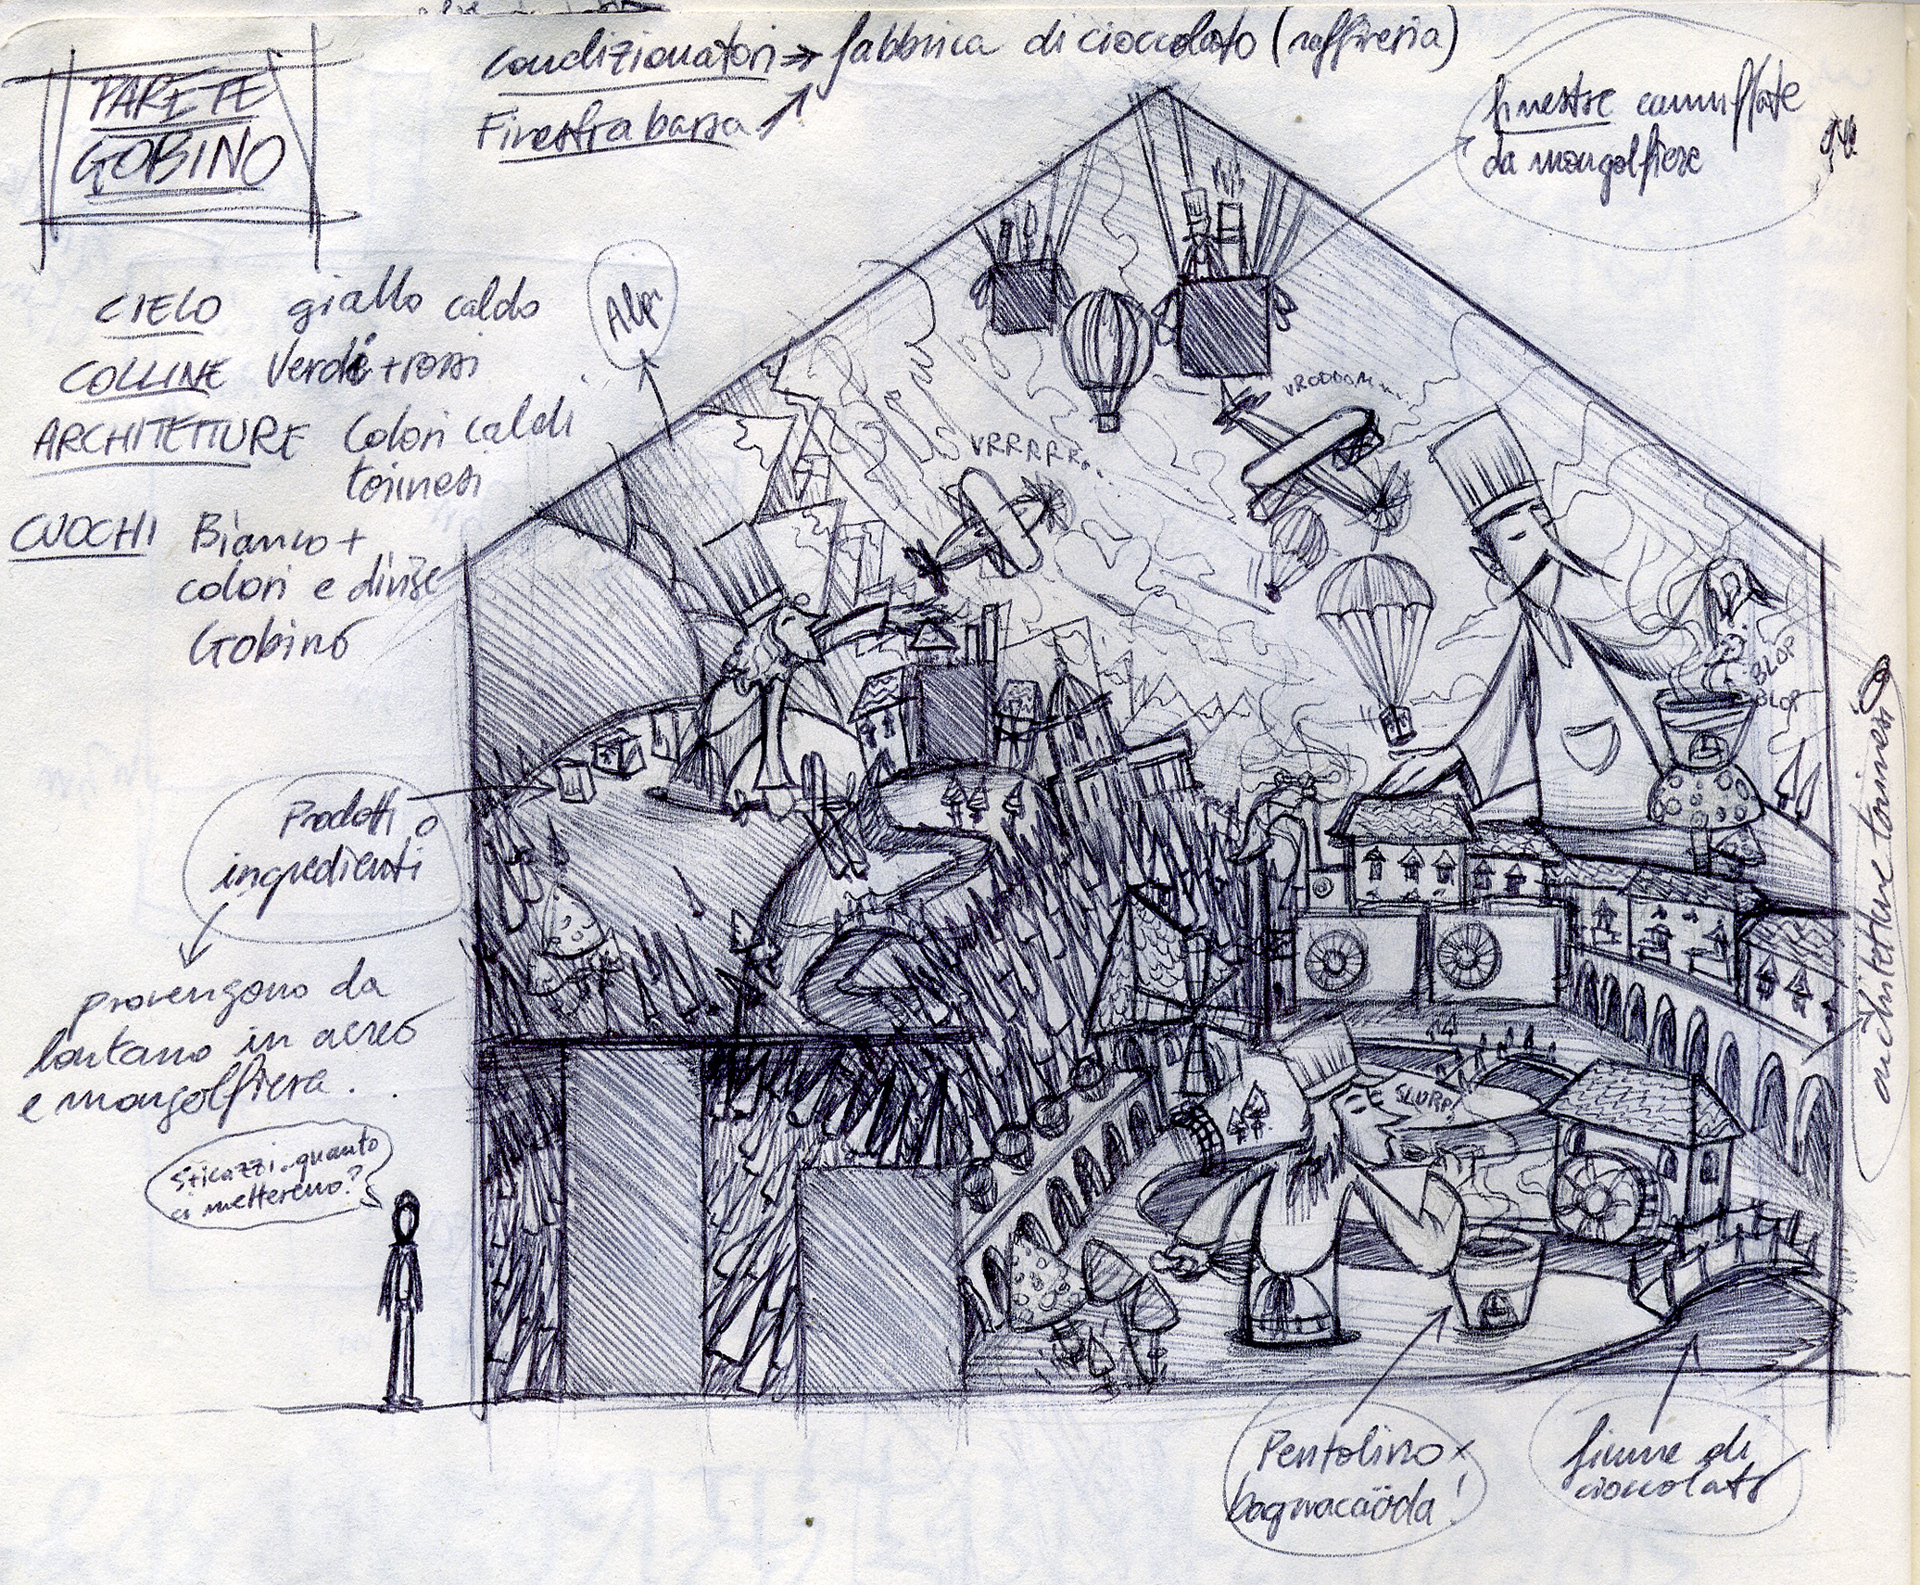 Condizionatori → fabbrica di cioccolato (raffineria)
Finestra bassa
PARETE
GOBINO
finestre camuffate
da mongolfiere
CIELO giallo caldo
COLLINE Verdi + rossi
ARCHITETTURE Colori caldi
torinesi
CUOCHI Bianco +
colori e divise
Gobino
Alpi
VRRRRR..
VROOOOM...
BLOP
BLOP
Prodotti o
ingredienti
provengono da
lontano in aereo
e mongolfiera.
Sticazzi..quanto
ci metteremo?
SLURP!
architetture torinesi
Pentolino x
bagnacaöda!
fiume di
cioccolato